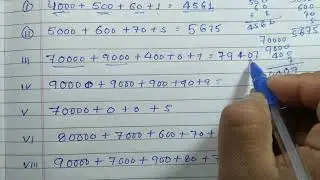 (i) 4000 + 500 + 60 + 1 = 4561
(ii) 5000 + 600 + 70 + 5 = 5675
III 70000 + 9000 + 400 + 0 + 7 = 79407
IV 90000 + 9000 + 900 + 90 + 9 =
V 70000 + 0 + 0 + 5
VI 80000 + 7000 + 600 + 70
VIII 90000 + 7000 + 900 + 80 + 7
600
60
4561
70000
9000